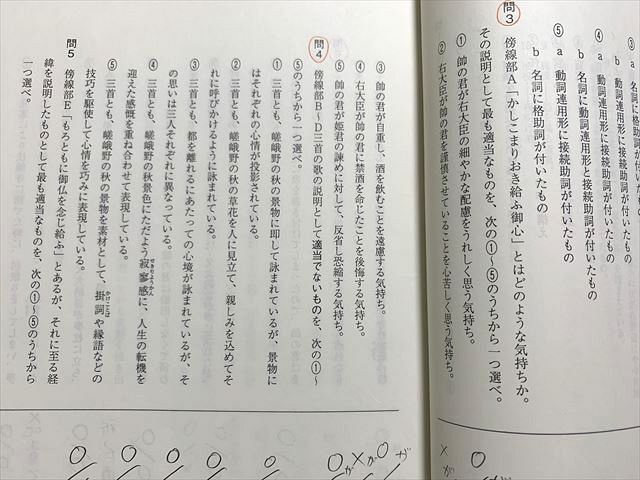 ③ a 名詞に格助詞が付いたもの
b 動詞連用形に接続助詞が付いたもの
④ a 動詞連用形に接続助詞が付いたもの
b 名詞に動詞連用形と接続助詞が付いたもの
⑤ a 動詞連用形に接続助詞が付いたもの
b 名詞に格助詞が付いたもの
問3 傍線部A「かしこまりおき給ふ御心」とはどのような気持ちか。
その説明として最も適当なものを、次の①～⑤のうちから一つ選べ。
① 帥の君が右大臣の細やかな配慮をうれしく思う気持ち。
② 右大臣が帥の君を謹慎させていることを心苦しく思う気持ち。
③ 帥の君が自重し、酒を飲むことを遠慮する気持ち。
④ 右大臣が帥の君に禁酒を命じたことを後悔する気持ち。
⑤ 帥の君が姫君の諫めに対して、反省し恐縮する気持ち。
問4 傍線部B～D三首の歌の説明として適当でないものを、次の①～
⑤のうちから一つ選べ。
① 三首とも、嵯峨野の秋の景物に即して詠まれているが、景物に
はそれぞれの心情が投影されている。
② 三首とも、嵯峨野の秋の草花を人に見立て、親しみを込めてそ
れに呼びかけるように詠まれている。
③ 三首とも、都を離れるにあたっての心境が詠まれているが、そ
の思いは三人それぞれに異なっている。
④ 三首とも、嵯峨野の秋景色にただよう寂寥感に、人生の転機を
迎えた感慨を重ね合わせて表現している。
⑤ 三首とも、嵯峨野の秋の景物を素材として、掛詞や縁語などの
技巧を駆使して心情を巧みに表現している。
問5 傍線部E「もろともに御仏を念じ給ふ」とあるが、それに至る経
緯を説明したものとして最も適当なものを、次の①～⑤のうちから
一つ選べ。